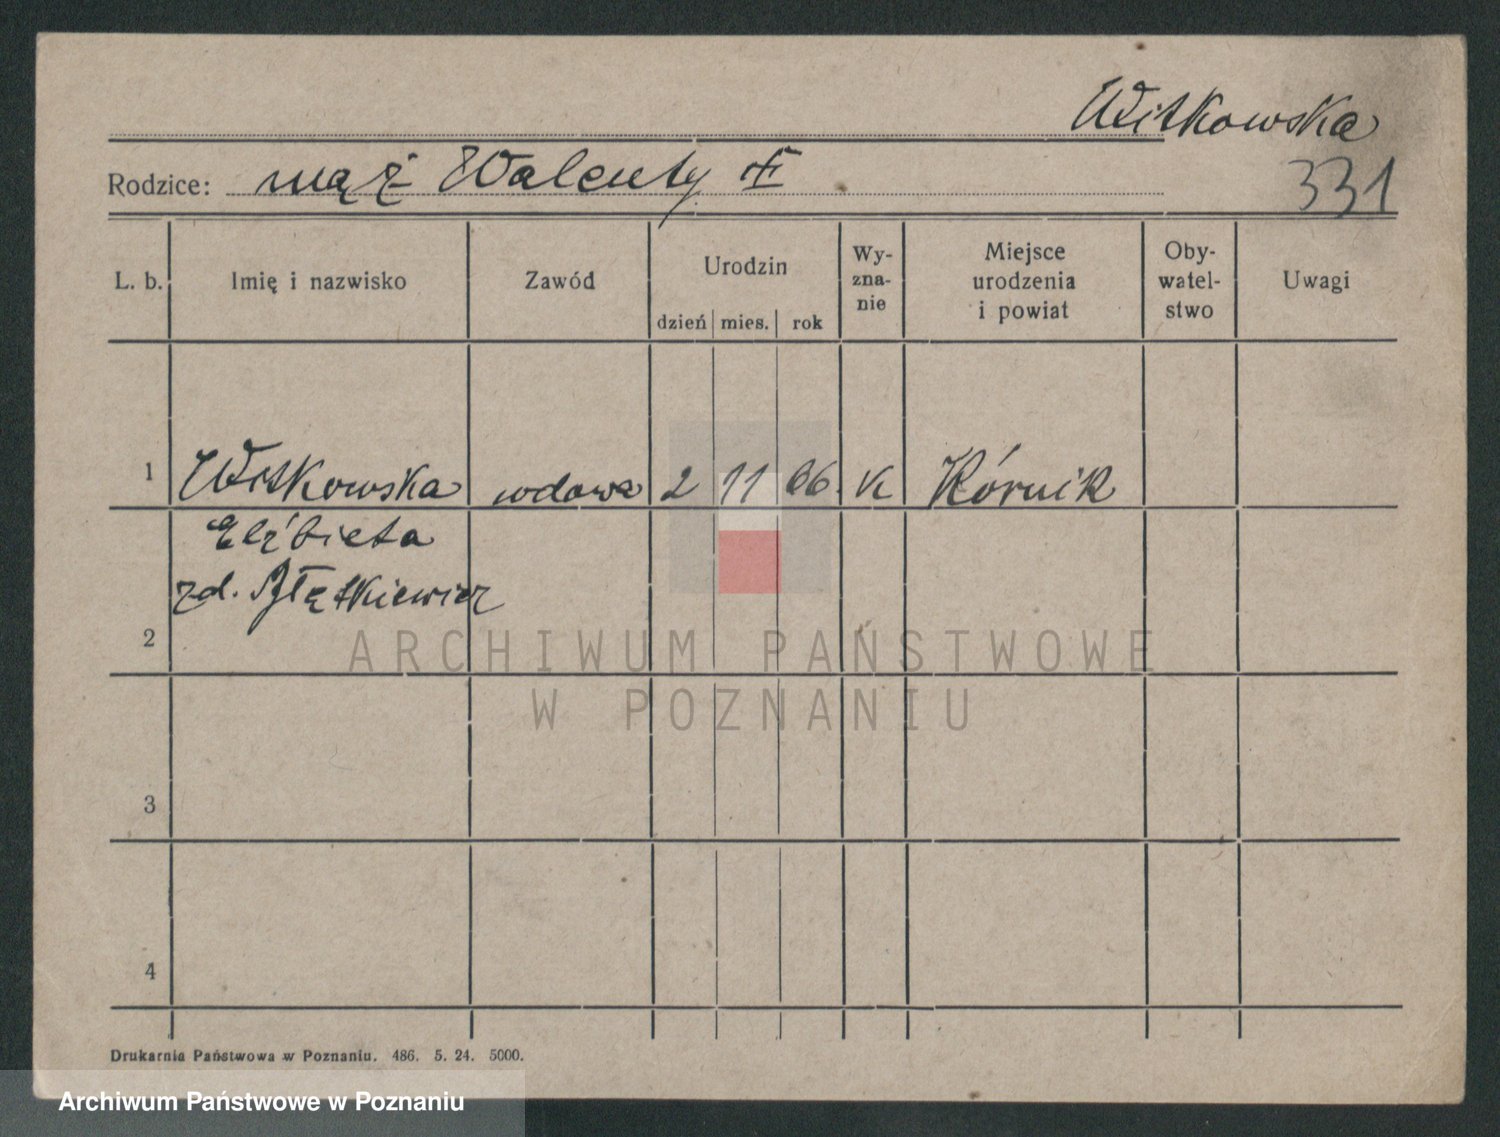 Witkowska
Rodzice: mąż Walenty
331
L. b. Imię i nazwisko Zawód Urodzin Wy-zna-nie Miejsce urodzenia i powiat Oby-watel-stwo Uwagi
dzień mies. rok
1 Witkowska wdowa 2 11 66. k Kórnik
Elżbieta
zd. Błętkiewicz
2
3
4
Drukarnia Państwowa w Poznaniu. 486. 5. 24. 5000.
ARCHIWUM PAŃSTWOWE
W POZNANIU
Archiwum Państwowe w Poznaniu